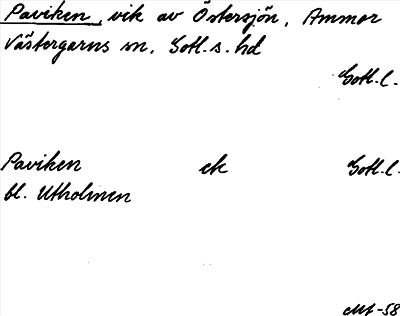 Paviken, vik av Östersjön, Ammor
Västergarns sn, Gotl. s. hd
Gotl. l.
Paviken ek Gotl. l.
bl. Utholmen
-58